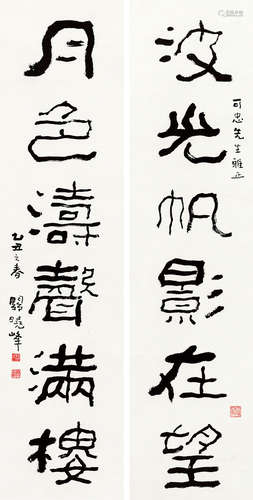 波光帆影在望
可忠先生雅正
月色濤聲滿樓
乙丑之春
關曉峯